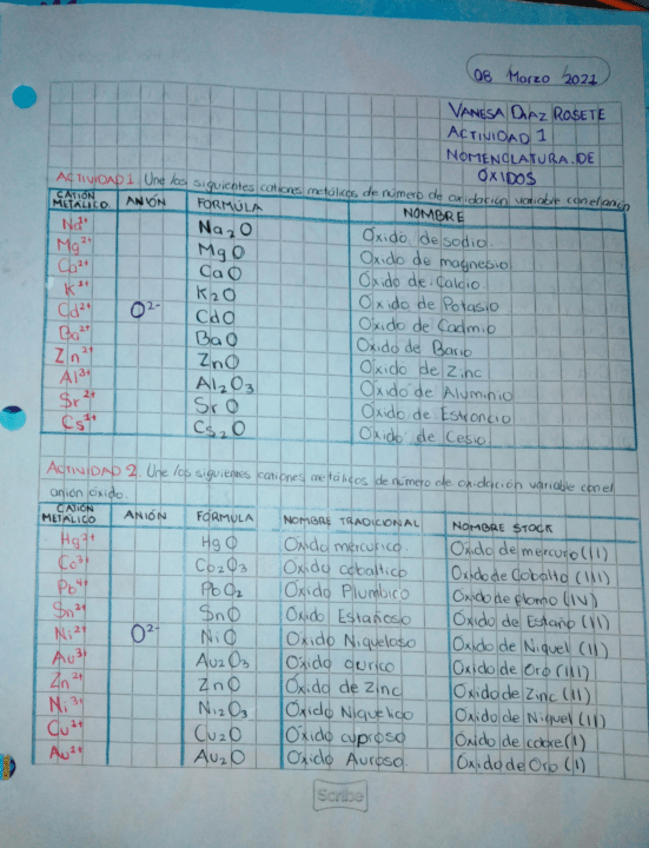 08 Marzo 2021
VANESA DíAZ ROSETE
ACTIVIDAD 1
NOMENCLATURA DE
ÓXIDOS
ACTIVIDAD 1. Une los siguientes cationes metálicos de número de oxidación variable con el anión
CATIÓN METÁLICO ANIÓN FORMÚLA NOMBRE
Na¹⁺ Na₂O Óxido de sodio.
Mg²⁺ MgO Óxido de magnesio
Ca²⁺ CaO Óxido de Calcio
K¹⁺ K₂O Óxido de Potasio
Cd²⁺ O²⁻ CdO Óxido de Cadmio
Ba²⁺ BaO Óxido de Bario
Zn²⁺ ZnO Óxido de Zinc
Al³⁺ Al₂O₃ Óxido de Aluminio
Sr²⁺ SrO Óxido de Estroncio
Cs¹⁺ Cs₂O Óxido de Cesio
ACTIVIDAD 2. Une los siguientes cationes metálicos de número de oxidación variable con el
anión óxido.
CATIÓN METÁLICO ANIÓN FÓRMULA NOMBRE TRADICIONAL NOMBRE STOCK
Hg²⁺ HgO Óxido mercurico. Óxido de mercurio (II)
Co³⁺ Co₂O₃ Óxido cobaltico Óxido de Cobalto (III)
Pb⁴⁺ PbO₂ Óxido Plumbico Óxido de plomo (IV)
Sn²⁺ SnO Óxido Estañoso Óxido de Estaño (II)
Ni²⁺ O²⁻ NiO Óxido Niqueloso Óxido de Niquel (II)
Au³⁺ Au₂O₃ Óxido aurico Óxido de Oro (III)
Zn²⁺ ZnO Óxido de Zinc Óxido de Zinc (II)
Ni³⁺ Ni₂O₃ Óxido Niquelico Óxido de Niquel (III)
Cu¹⁺ Cu₂O Óxido cuproso Óxido de cobre (I)
Au¹⁺ Au₂O Óxido Auroso. Óxido de Oro (I)
Scribe